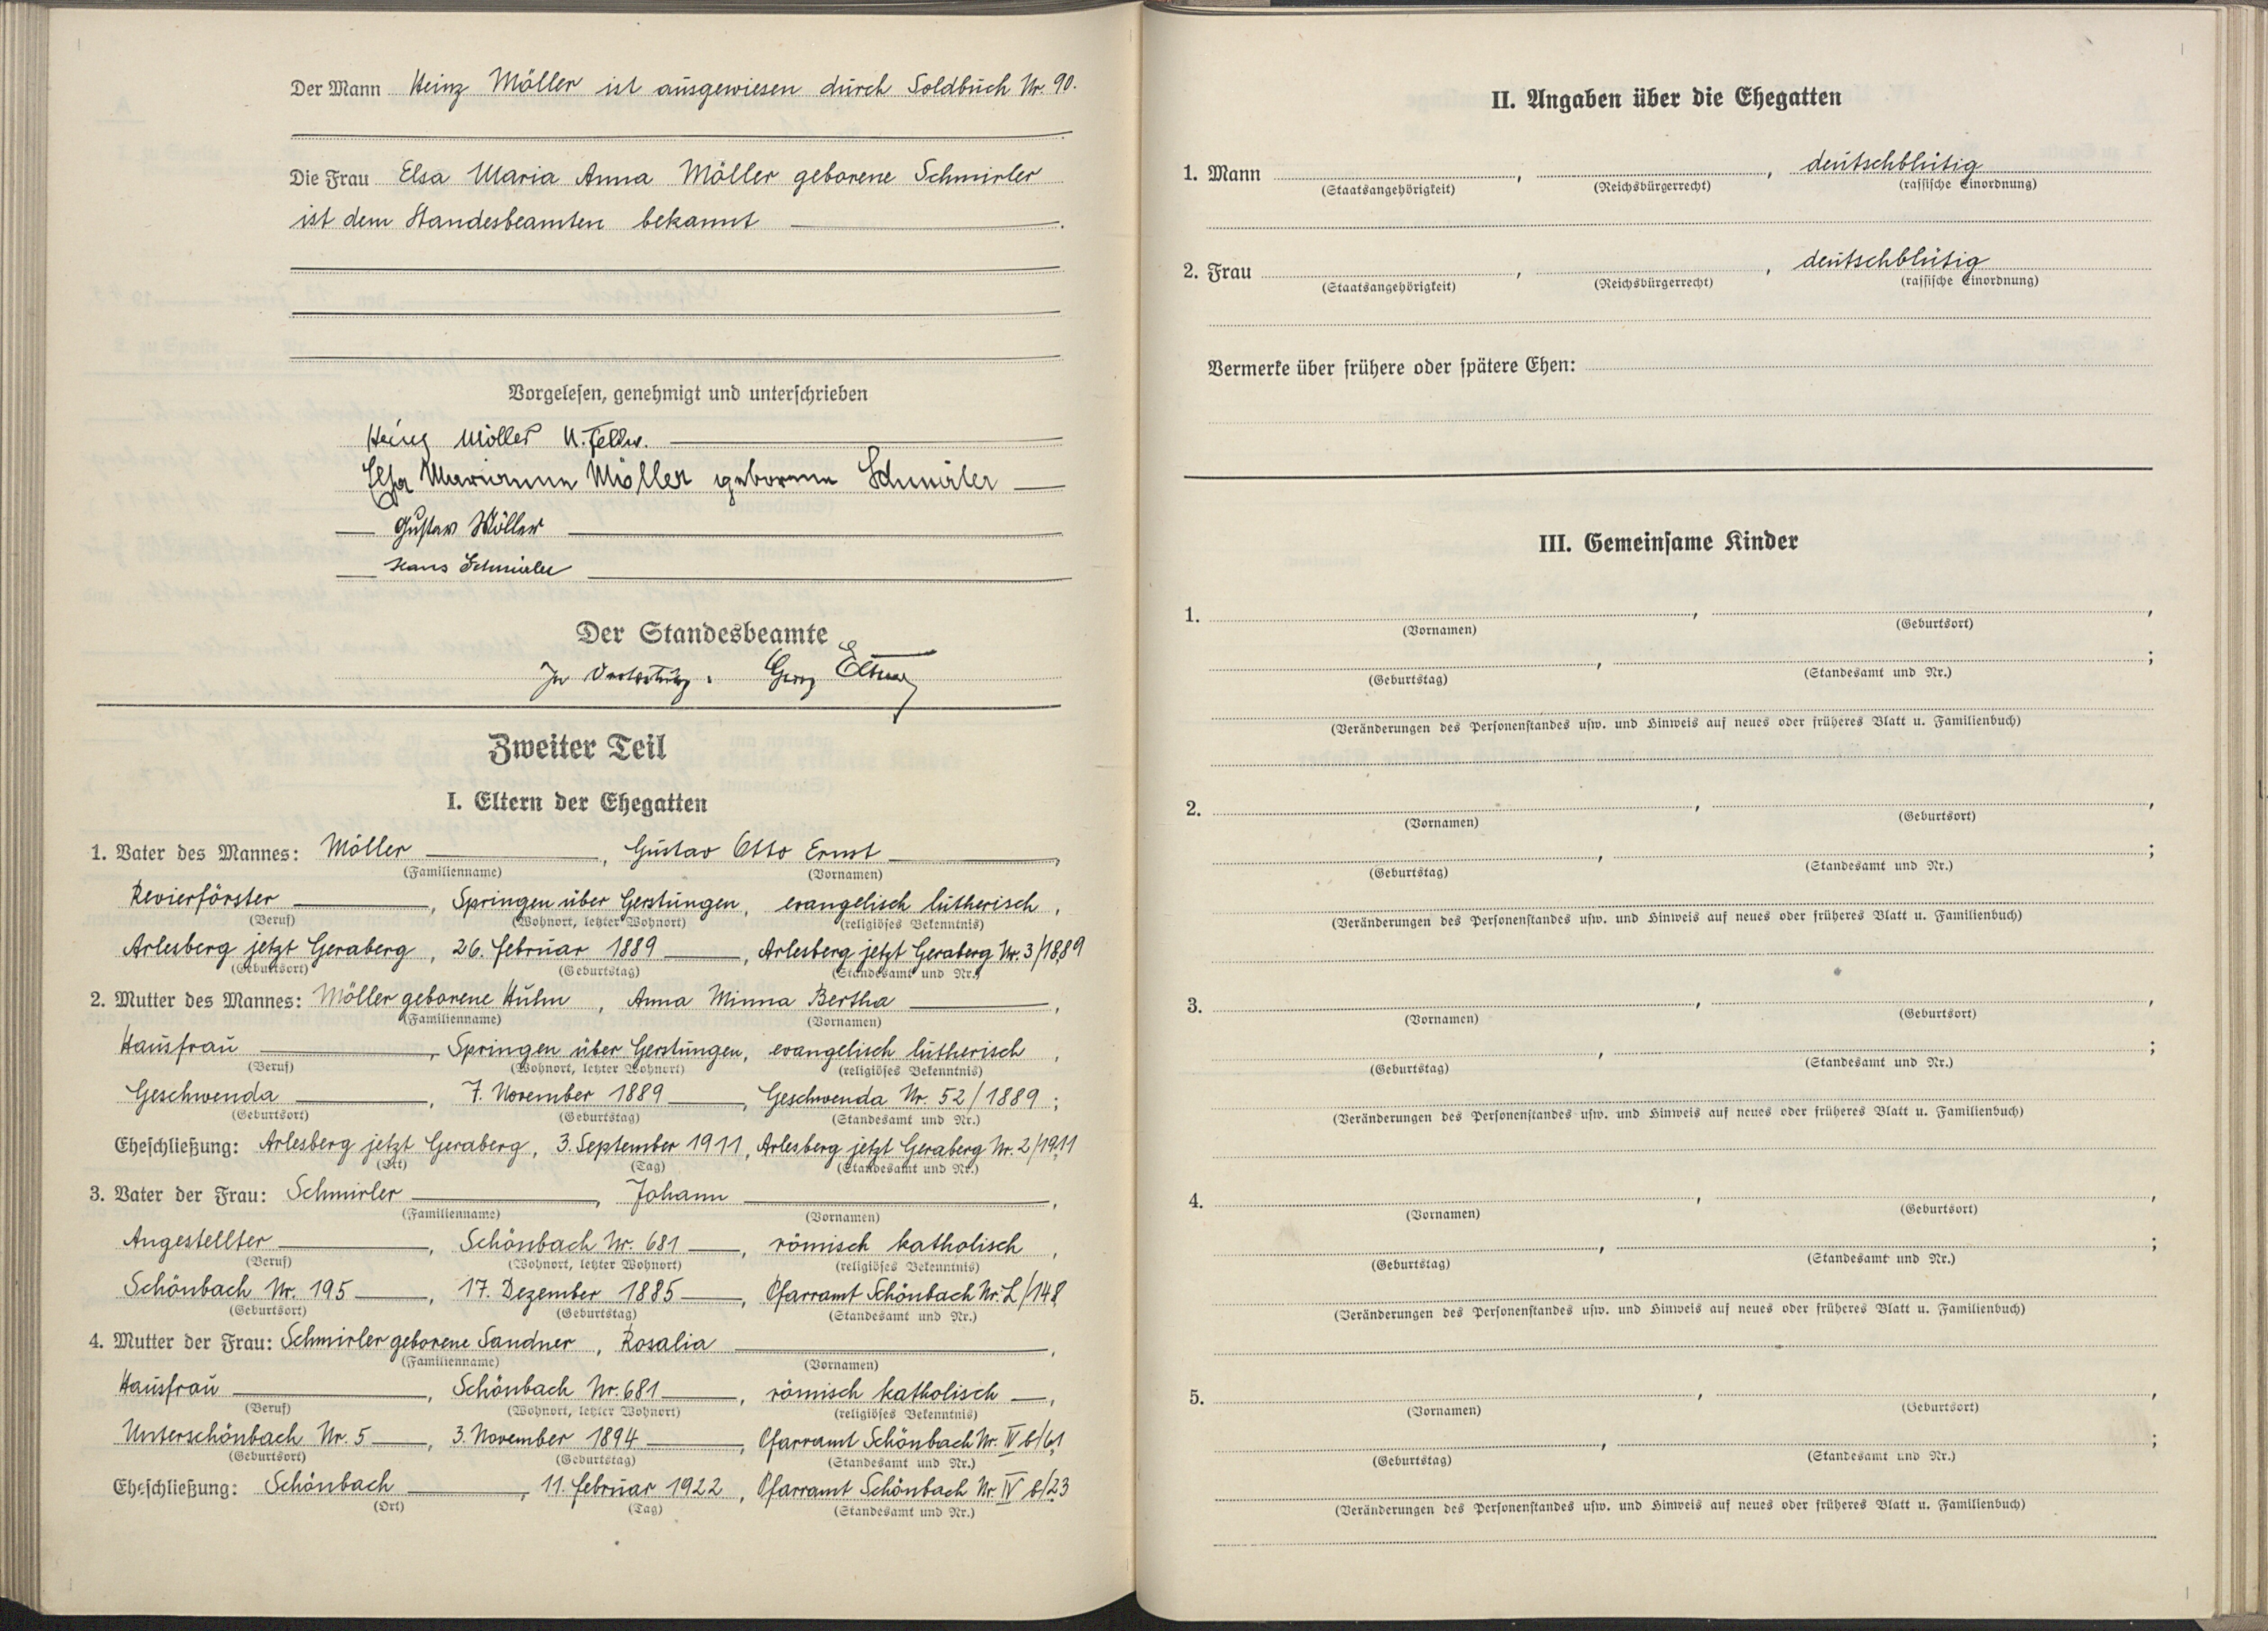 Der Mann Heinz Möller ist ausgewiesen durch Soldbuch Nr. 90.
Die Frau Elsa Maria Anna Möller geborene Schmirler
ist dem Standesbeamten bekannt
Vorgelesen, genehmigt und unterschrieben
Heinz Möller U. Feldw.
Elsa Marianna Möller geborene Schmirler
Gustav Möller
Hans Schmirler
Der Standesbeamte
In Vertretung: Georg
Zweiter Teil
I. Eltern der Ehegatten
1. Vater des Mannes: Möller, Gustav Otto Ernst,
(Familienname) (Vornamen)
Revierförster, Springen über Gerstungen, evangelisch lutherisch,
(Beruf) (Wohnort, letzter Wohnort) (religiöses Bekenntnis)
Arlesberg jetzt Geraberg, 26. Februar 1889, Arlesberg jetzt Geraberg Nr. 3/1889
(Geburtsort) (Geburtstag) (Standesamt und Nr.)
2. Mutter des Mannes: Möller geborene Huhn, Anna Minna Bertha,
(Familienname) (Vornamen)
Hausfrau, Springen über Gerstungen, evangelisch lutherisch,
(Beruf) (Wohnort, letzter Wohnort) (religiöses Bekenntnis)
Geschwenda, 7. November 1889, Geschwenda Nr. 52/1889;
(Geburtsort) (Geburtstag) (Standesamt und Nr.)
Eheschließung: Arlesberg jetzt Geraberg, 3. September 1911, Arlesberg jetzt Geraberg Nr. 2/1911
(Ort) (Tag) (Standesamt und Nr.)
3. Vater der Frau: Schmirler, Johann,
(Familienname) (Vornamen)
Angestellter, Schönbach Nr. 681, römisch katholisch,
(Beruf) (Wohnort, letzter Wohnort) (religiöses Bekenntnis)
Schönbach Nr. 195, 17. Dezember 1885, Pfarramt Schönbach Nr. L/148
(Geburtsort) (Geburtstag) (Standesamt und Nr.)
4. Mutter der Frau: Schmirler geborene Sandner, Rosalia,
(Familienname) (Vornamen)
Hausfrau, Schönbach Nr. 681, römisch katholisch,
(Beruf) (Wohnort, letzter Wohnort) (religiöses Bekenntnis)
Unterschönbach Nr. 5, 3. November 1894, Pfarramt Schönbach Nr. IV b/61
(Geburtsort) (Geburtstag) (Standesamt und Nr.)
Eheschließung: Schönbach, 11. Februar 1922, Pfarramt Schönbach Nr. IV b/23
(Ort) (Tag) (Standesamt und Nr.)
II. Angaben über die Ehegatten
1. Mann , , deutschblütig
(Staatsangehörigkeit) (Reichsbürgerrecht) (rassische Einordnung)
2. Frau , , deutschblütig
(Staatsangehörigkeit) (Reichsbürgerrecht) (rassische Einordnung)
Vermerke über frühere oder spätere Ehen:
III. Gemeinsame Kinder
1. , ,
(Vornamen) (Geburtsort)
, ;
(Geburtstag) (Standesamt und Nr.)
(Veränderungen des Personenstandes usw. und Hinweis auf neues oder früheres Blatt u. Familienbuch)
2. , ,
(Vornamen) (Geburtsort)
, ;
(Geburtstag) (Standesamt und Nr.)
(Veränderungen des Personenstandes usw. und Hinweis auf neues oder früheres Blatt u. Familienbuch)
3. , ,
(Vornamen) (Geburtsort)
, ;
(Geburtstag) (Standesamt und Nr.)
(Veränderungen des Personenstandes usw. und Hinweis auf neues oder früheres Blatt u. Familienbuch)
4. , ,
(Vornamen) (Geburtsort)
, ;
(Geburtstag) (Standesamt und Nr.)
(Veränderungen des Personenstandes usw. und Hinweis auf neues oder früheres Blatt u. Familienbuch)
5. , ,
(Vornamen) (Geburtsort)
, ;
(Geburtstag) (Standesamt und Nr.)
(Veränderungen des Personenstandes usw. und Hinweis auf neues oder früheres Blatt u. Familienbuch)